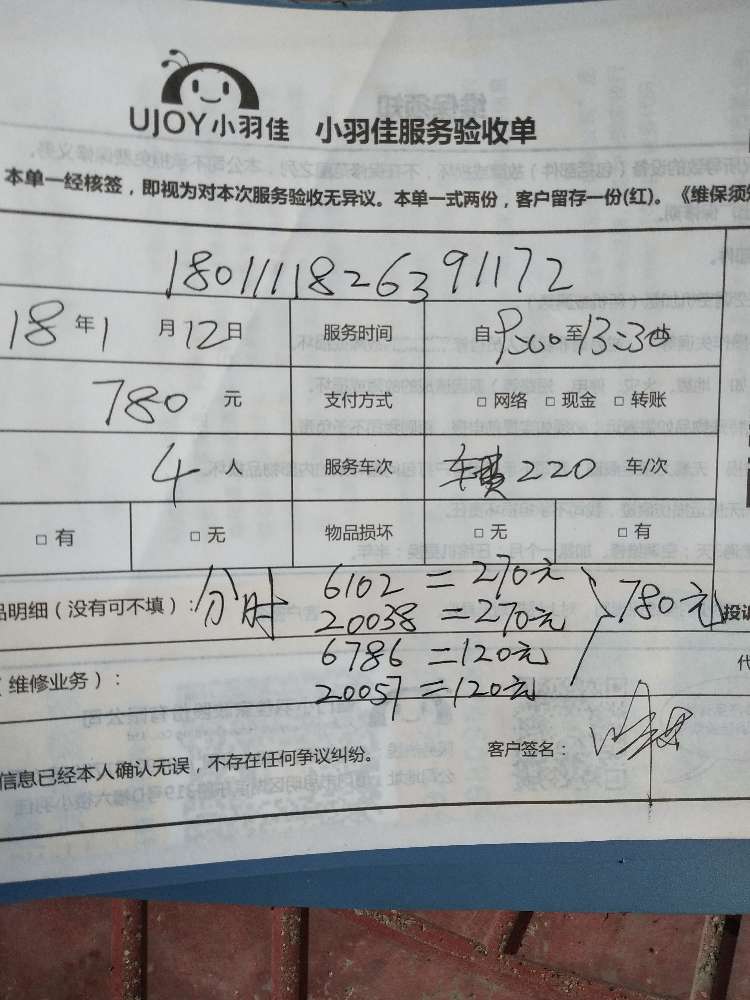 UJOY小羽佳 小羽佳服务验收单
本单一经核签，即视为对本次服务验收无异议。本单一式两份，客户留存一份(红)。《维保须知
180111826391172
18年1月12日 服务时间 自9:00至13:30止
780元 支付方式 □网络 □现金 □转账
4人 服务车次 车费220 车/次
□有 □无 物品损坏 □无 □有
品明细（没有可不填）：分时 6102=270元 780元 投诉
20038=270元
6786=120元 代
（维修业务）：
20057=120元
信息已经本人确认无误，不存在任何争议纠纷。 客户签名：